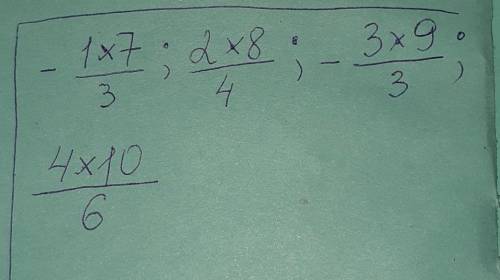 - 1×7/3 ; 2×8/4 ; - 3×9/3 ;
4×10/6